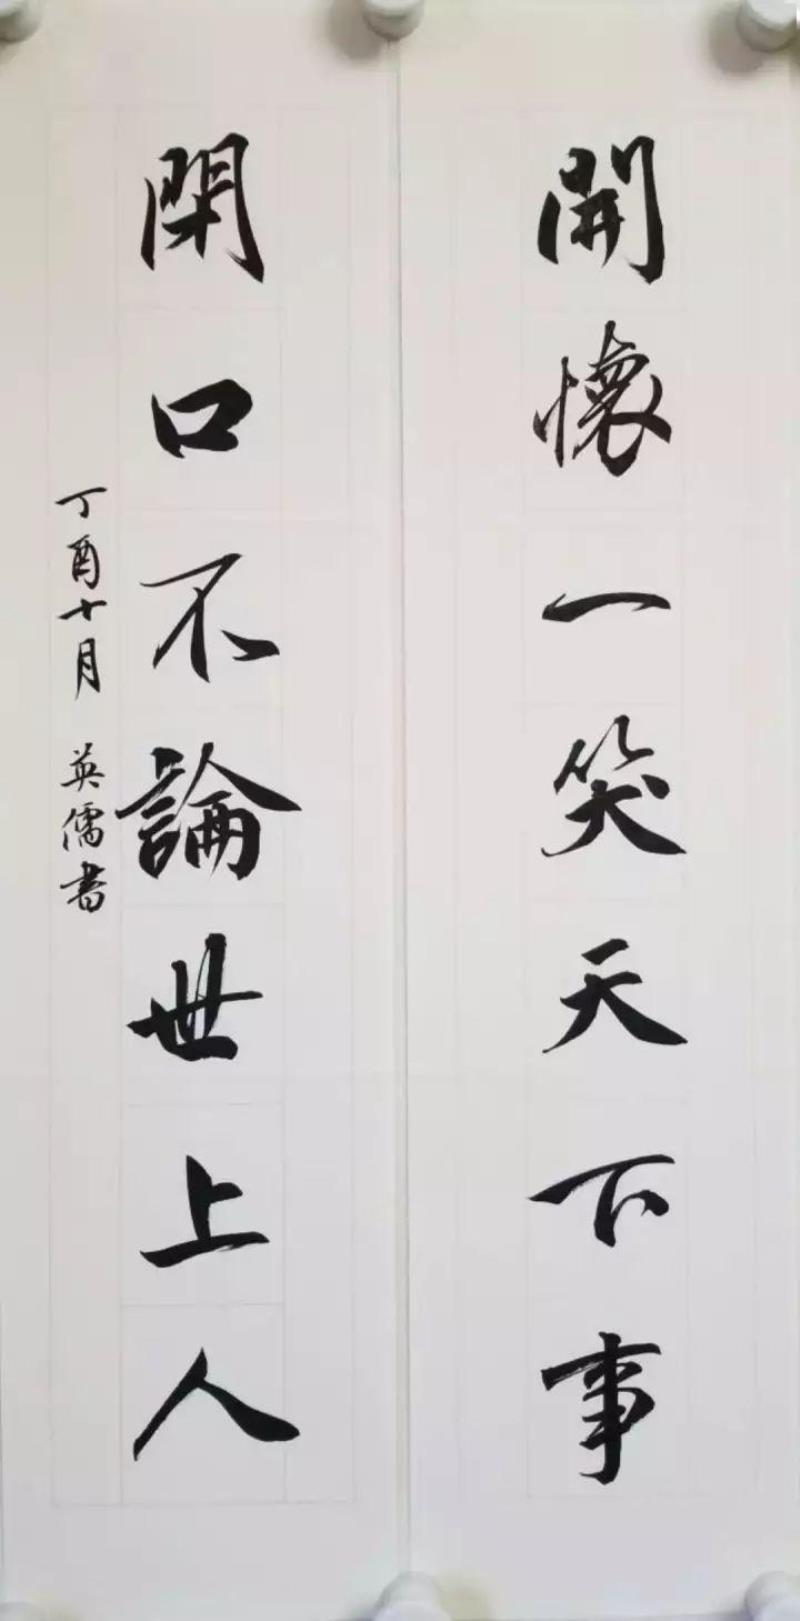 開懷一笑天下事
閉口不論世上人
丁酉十月 英儒書